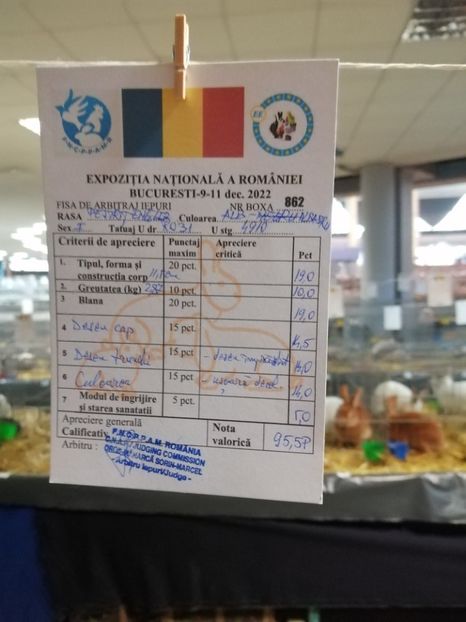 F.N.C.P.P.A.M.R
EXPOZIȚIA NAȚIONALĂ A ROMÂNIEI
BUCURESTI-9-11 dec. 2022
FISA DE ARBITRAJ IEPURI NR BOXA 862
RASA Culoarea ALB
Sex F Tatuaj U dr. R031 U stg. 4910
Criterii de apreciere Punctaj maxim Apreciere critică Pct
1. Tipul, forma și construcția corp 20 pct. 19,0
2. Greutatea (kg) 10 pct. 10,0
3 Blana 20 pct. 19,0
4 Desen cap 15 pct. 14,5
5 Desen 15 pct - desen 14,0
6 Culoarea 15 pct ușoară 14,0
7 Modul de îngrijire și starea sanatatii 5 pct. 5,0
Apreciere generală
Calificativ Nota valorică 95,5P
Arbitru :
F.N.C.P.P.A.M. ROMÂNIA
JUDGING COMMISSION
SORIN-MARCEL
- Arbitru Iepuri/Judge -